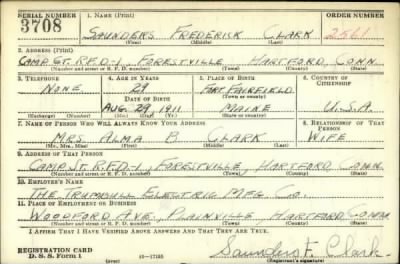 SERIAL NUMBER 1. NAME (Print) ORDER NUMBER
3708 SAUNDERS FREDERICK CLARK 2561
(First) (Middle) (Last)
2. ADDRESS (Print)
CAMP ST. R.F.D-1, FORESTVILLE HARTFORD, CONN.
(Number and street or R. F. D. number) (Town) (County) (State)
3. TELEPHONE 4. AGE IN YEARS 5. PLACE OF BIRTH 6. COUNTRY OF CITIZENSHIP
NONE 29 FORT FAIRFIELD
DATE OF BIRTH (Town or county)
AUG 29 1911 MAINE U.S.A
(Exchange) (Number) (Mo.) (Day) (Yr.) (State or country)
7. NAME OF PERSON WHO WILL ALWAYS KNOW YOUR ADDRESS 8. RELATIONSHIP OF THAT PERSON
MRS. ALMA B CLARK WIFE
(Mr., Mrs., Miss) (First) (Middle) (Last)
9. ADDRESS OF THAT PERSON
CAMP ST. R.F.D-1, FORESTVILLE, HARTFORD, CONN.
(Number and street or R. F. D. number) (Town) (County) (State)
10. EMPLOYER'S NAME
THE TRUMBULL ELECTRIC MFG CO.
11. PLACE OF EMPLOYMENT OR BUSINESS
WOODFORD AVE, PLAINVILLE HARTFORD, CONN
(Number and street or R. F. D. number) (Town) (County) (State)
I AFFIRM THAT I HAVE VERIFIED ABOVE ANSWERS AND THAT THEY ARE TRUE.
REGISTRATION CARD
D. S. S. Form 1 (over) Saunders F. Clark
(Registrant's signature)